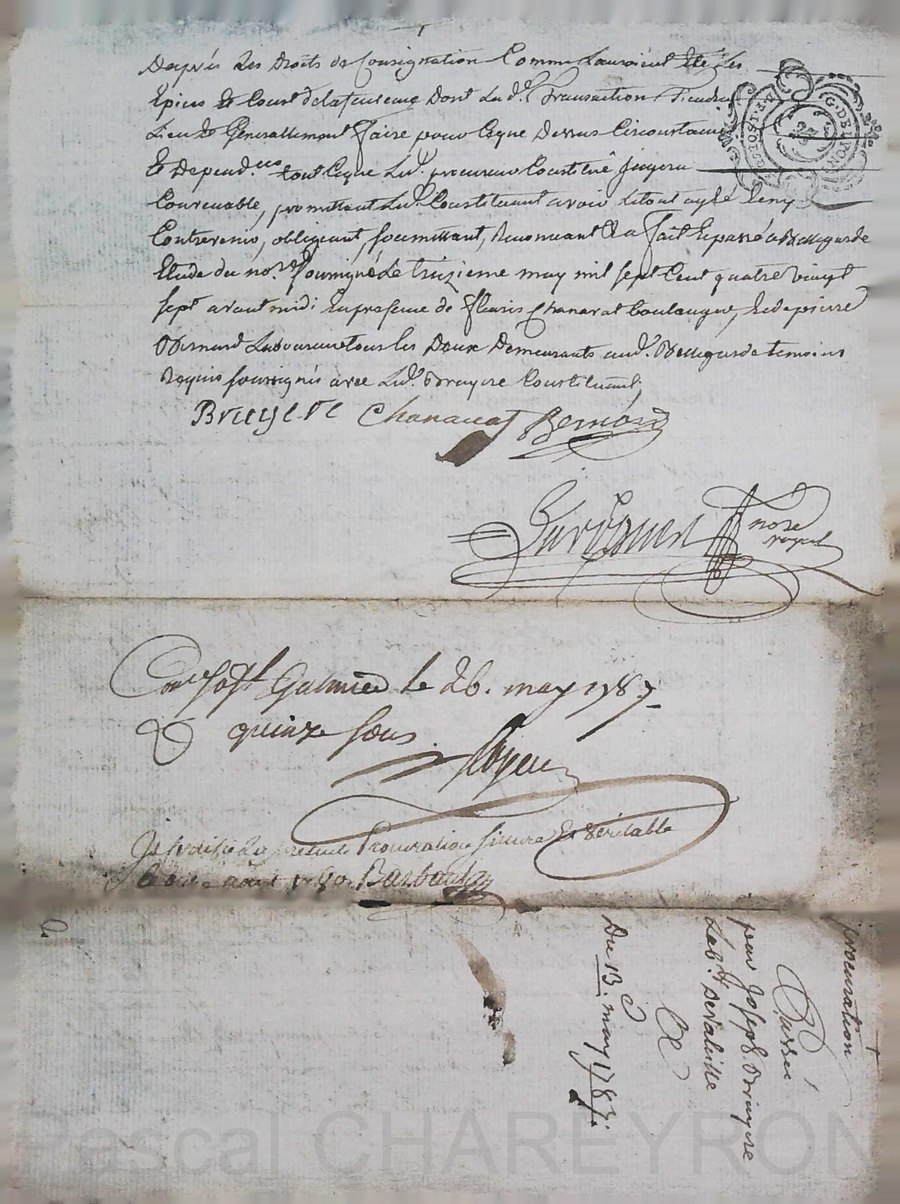 Daprés Les Droits de Consignation Comme Lauroient Eté Les
Epices Et Dont Lad.e Transaction Tiendra
Lieu Et Generallement faire pour Ceque Dessus Circonstances
Et Depend.ces tout Ceque Led. procureur Constitué jugera
Convenable, promettant Led. Constituant avoir Letout agréé
Contrevenir, obligeant, soumettant, Renonceant &.a fait Et passé a Bellegarde
Etude du no.re soussigné Le treizieme may mil sept Cent quatre vingt
sept avant midi En presence de fleuris Chanavat boulanger, Et de pierre
Bernard Laboureur tous les Deux Demeurants aud. Bellegarde temoins
Requis soussignés avec Led. Bruyere Constituant.
Bruyere Chanavat Bernard
no.re royal
Con.lé a St Galmier le 26. may 1787.
R quinze sous.
Je Certifie La presente Procuration sincere Et Veritable
1780
procuration
Passée
par Joseph Bruyere
Lab.r De
Du 13. may 1787.
G. DE LYON
Pascal CHAREYRON